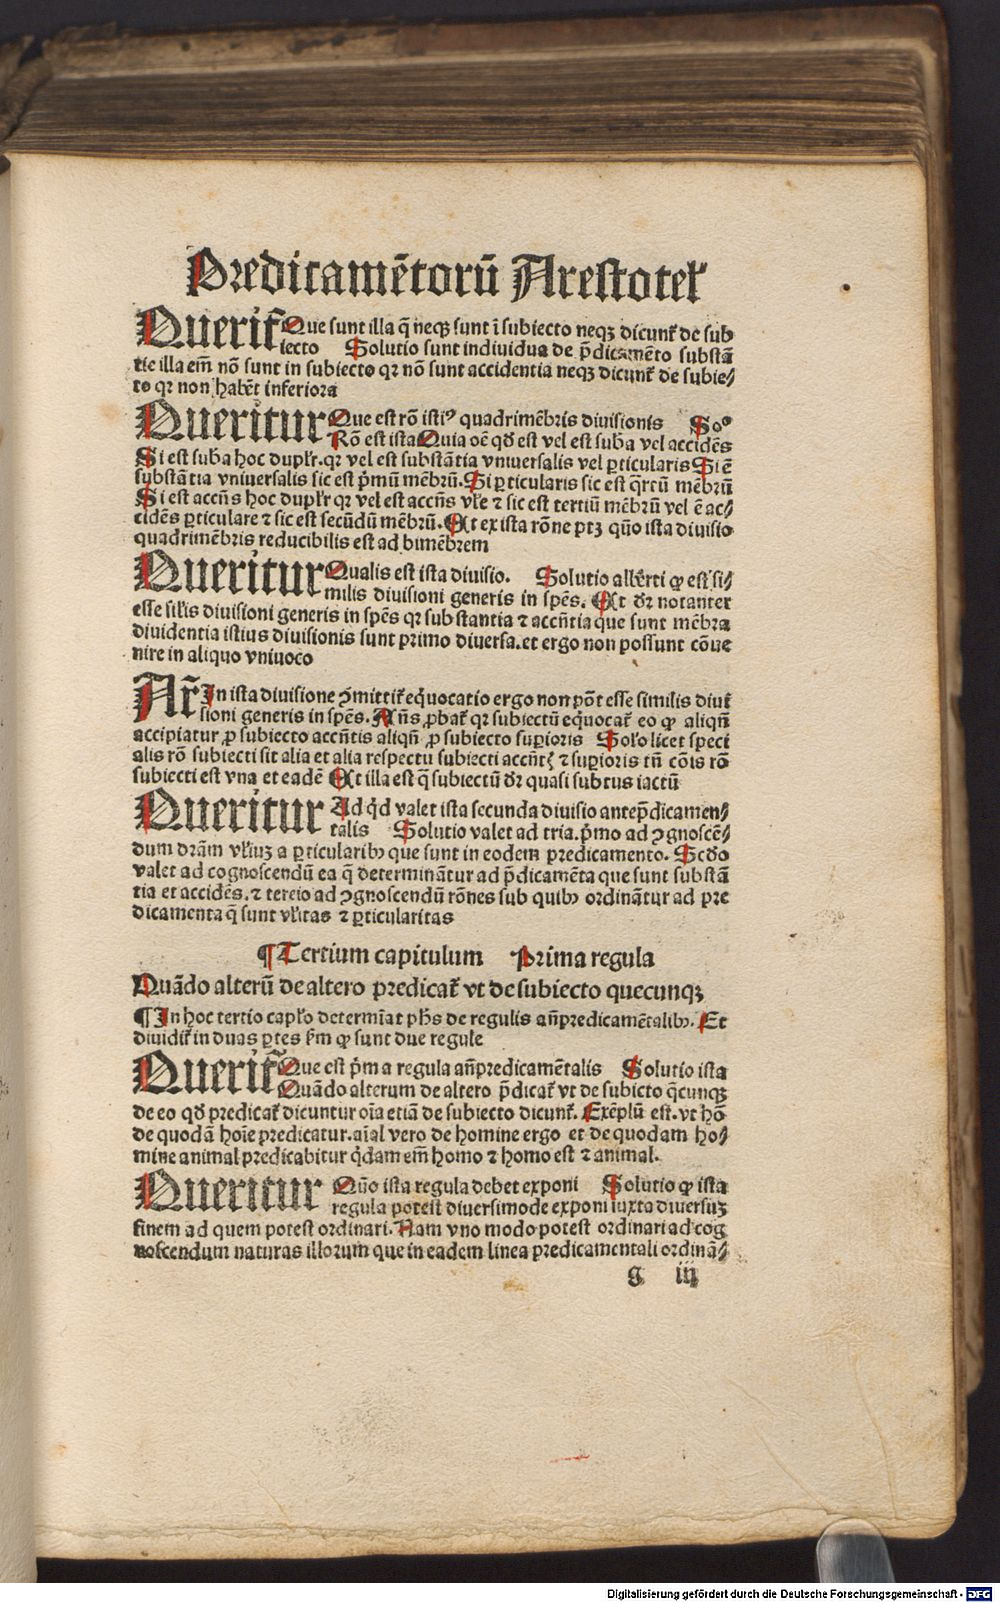 Predicamētorū Arestotelꝭ
Querit᷑ Que sunt illa q̄ neqꝫ sunt ī subiecto neqꝫ dicunt᷑ de sub
iecto Solutio sunt indiuidua de p̄dicamēto substā
tie illa em̄ nō sunt in subiecto qꝛ nō sunt accidentia neqꝫ dicunt᷑ de subie⸗
to qꝛ non habēt inferiora
Queritur Que est rō istiꝰ quadrimēbris diuisionis Soᵒ
Rō est ista Quia oē qd̄ est vel est suba vel accidēs
Si est suba hoc duplꝭr. qꝛ vel est substātia vniuersalis vel ꝑticularis Si ē
substātia vniuersalis sic est p̄mū mēbrū. Si ꝑticularis sic est q̄rtū mēbrū
Si est accn̄s hoc duplꝭr qꝛ vel est accn̄s vlꝭe ⁊ sic est tertiū mēbrū vel ē ac⸗
cidēs ꝑticulare ⁊ sic est secūdū mēbrū. Et ex ista rōne ptꝫ quō ista diuisio
quadrimēbris reducibilis est ad bimēbrem
Queritur Qualis est ista diuisio. Solutio alb̄erti ꝙ est si⸗
milis diuisioni generis in spēs. Et dr̄ notanter
esse silꝭis diuisioni generis in spēs qꝛ substantia ⁊ accn̄tia que sunt mēbra
diuidentia istius diuisionis sunt primo diuersa. et ergo non possunt cōue
nire in aliquo vniuoco
Ar̄ In ista diuisione ꝯmittit᷑ eq̄uocatio ergo non pōt esse similis diui
sioni generis in spēs. An̄s ꝓbat᷑ qꝛ subiectū eq̄uocat᷑ eo ꝙ aliqn̄
accipiatur ꝓ subiecto accn̄tis aliqn̄ ꝓ subiecto suꝑioris Solꝭo licet speci
alis rō subiecti sit alia et alia respectu subiecti accn̄tꝭ ⁊ suꝑioris tn̄ cōis rō
subiecti est vna et eadē Et illa est q̄ subiectū dr̄ quasi subtus iactū
Queritur Ad qd̄ valet ista secunda diuisio antep̄dicamen⸗
talis Solutio valet ad tria. p̄mo ad ꝯgnoscē⸗
dum dr̄am vlꝭiuꝫ a ꝑticularibꝫ que sunt in eodem predicamento. Scd̄o
valet ad cognoscendū ea q̄ determināntur ad p̄dicamēta que sunt substā
tia et accidēs. ⁊ tercio ad ꝯgnoscendū rōnes sub quibꝫ ordināntur ad pre
dicamenta q̄ sunt vlꝭitas ⁊ ꝑticularitas
¶ Tertium capitulum Prima regula
Quādo alterū de altero predicat᷑ vt de subiecto quecunqꝫ
¶ In hoc tertio caplꝭo determīat ph̄s de regulis an̄predicamētalibꝫ. Et
diuidit᷑ in duas ꝑtes km̄ ꝙ sunt due regule
Querit᷑ Que est p̄ma regula an̄predicamētalis Solutio ista
Quādo alterum de altero p̄dicat᷑ vt de subicto q̄cunqꝫ
de eo qd̄ predicat᷑ dicuntur oīa etiā de subiecto dicunt᷑. Exēplū est. vt hō
de quodā hoīe predicatur. aīal vero de homine ergo et de quodam ho⸗
mine animal predicabitur q̄dam em̄ homo ⁊ homo est ⁊ animal.
Queritur Quō ista regula debet exponi Solutio ꝙ ista
regula potest diuersimode exponi iuxta diuersuꝫ
finem ad quem potest ordinari. Nam vno modo potest ordinari ad cog
noscendum naturas illorum que in eadem linea predicamentali ordinā⸗
g iij
Digitalisierung gefördert durch die Deutsche Forschungsgemeinschaft - DFG